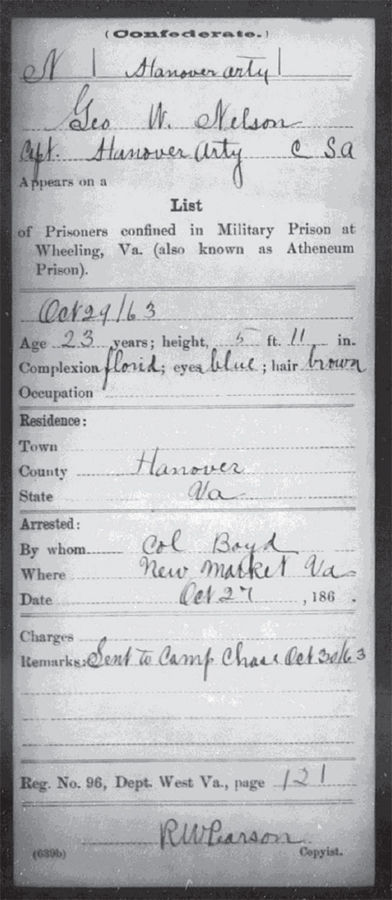 (Confederate.)
N | Hanover arty |
Geo W. Nelson
Capt. Hanover Arty C S A
Appears on a
List
of Prisoners confined in Military Prison at
Wheeling, Va. (also known as Atheneum
Prison).
Oct 29/63
Age 23 years; height, 5 ft. 11 in.
Complexion florid; eyes blue; hair brown
Occupation
Residence:
Town
County Hanover
State Va
Arrested:
By whom Col Boyd
Where New Market Va
Date Oct 27, 186 .
Charges
Remarks: Sent to Camp Chase Oct 30/63
Reg. No. 96, Dept. West Va., page 121
R W Pearson
(639b) Copyist.